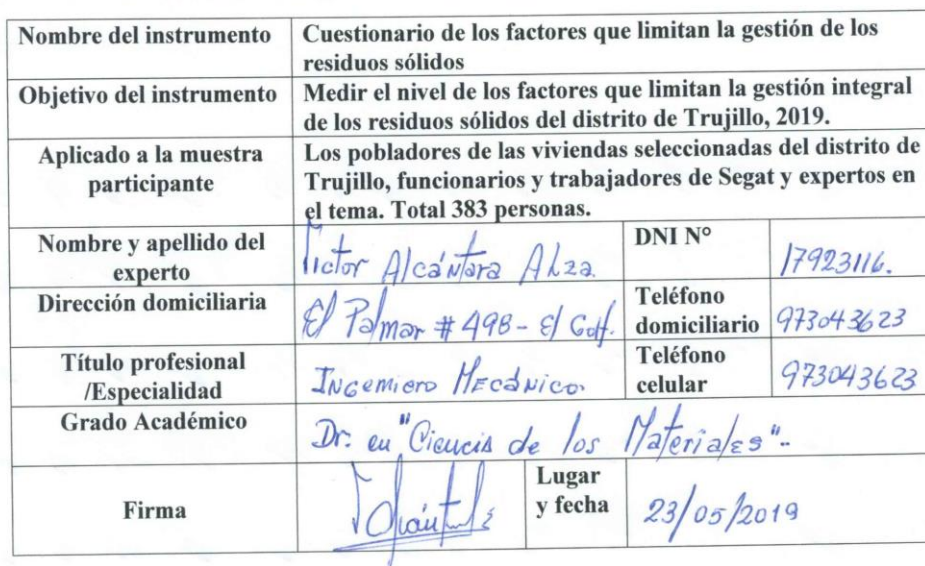 Nombre del instrumento
Cuestionario de los factores que limitan la gestión de los
residuos sólidos
Objetivo del instrumento
Medir el nivel de los factores que limitan la gestión integral
de los residuos sólidos del distrito de Trujillo, 2019.
Aplicado a la muestra
participante
Los pobladores de las viviendas seleccionadas del distrito de
Trujillo, funcionarios y trabajadores de Segat y expertos en
el tema. Total 383 personas.
Nombre y apellido del
experto
Victor Alcántara Alza.
DNI N°
17923116.
Dirección domiciliaria
El Palmar # 498 - El Golf.
Teléfono
domiciliario
973043623
Título profesional
/Especialidad
Ingeniero Mecánico.
Teléfono
celular
973043623
Grado Académico
Dr. en "Ciencia de los Materiales"..
Firma
Lugar
y fecha
23/05/2019